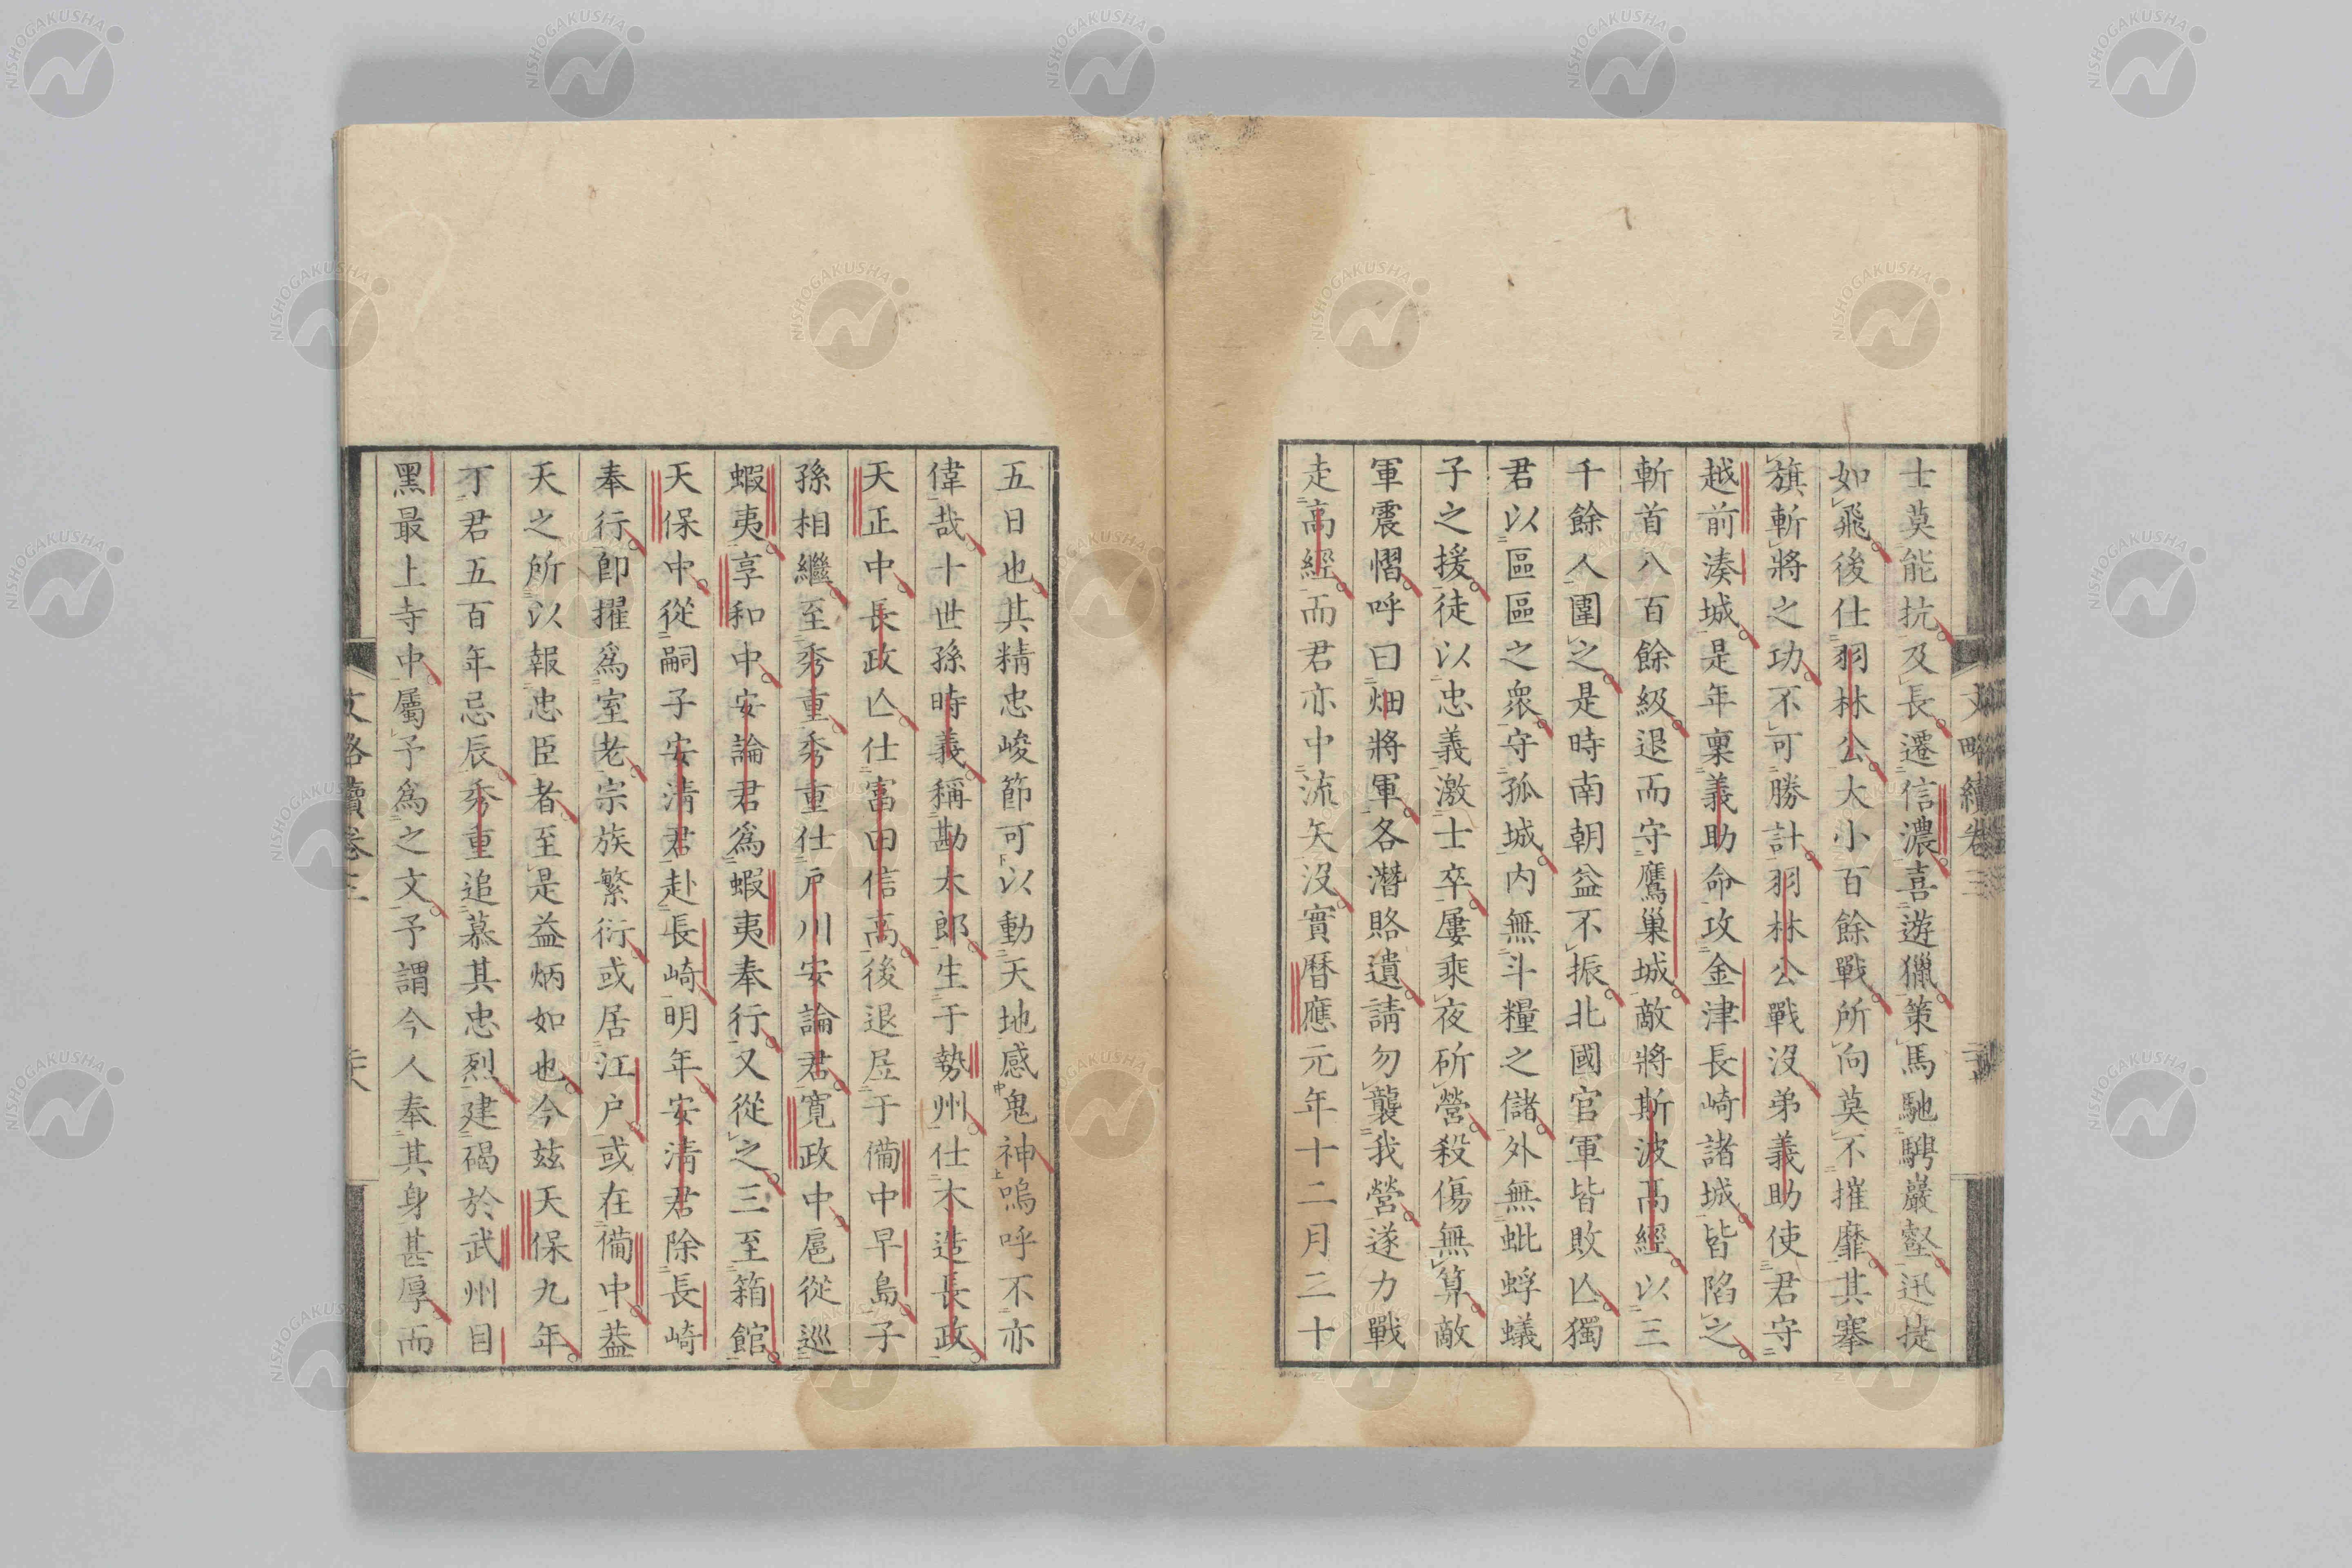 士莫能抗及長遷信濃喜遊獵策馬馳騁巖壑迅捷
如飛後仕羽林公大小百餘戰所向莫不摧靡其搴
旗斬將之功不可勝計羽林公戰沒弟義助使君守
越前湊城是年稟義助命攻金津長崎諸城皆陷之
斬首八百餘級退而守鷹巢城敵將斯波高經以三
千餘人圍之是時南朝益不振北國官軍皆敗亾獨
君以區區之衆守孤城内無斗糧之儲外無蚍蜉蟻
子之援徒以忠義激士卒屢乘夜斫營殺傷無算敵
軍震慴呼曰畑將軍各潛賂遺請勿襲我營遂力戰
走高經而君亦中流矢沒實曆應元年十二月二十
五日也其精忠峻節可以動天地感鬼神嗚呼不亦
偉哉十世孫時義稱勘太郎生于勢州仕木造長政
天正中長政亾仕富田信高後退居于備中早島子
孫相繼至秀重秀重仕戶川安論君寬政中扈從巡
蝦夷享和中安論君爲蝦夷奉行又從之三至箱館
天保中從嗣子安淸君赴長崎明年安淸君除長崎
奉行卽擢爲室老宗族繁衍或居江戶或在備中葢
天之所以報忠臣者至是益炳如也今玆天保九年
丁君五百年忌辰秀重追慕其忠烈建碣於武州目
黑最上寺中屬予爲之文予謂今人奉其身甚厚而
文略續卷三
NISHOGAKUSHA